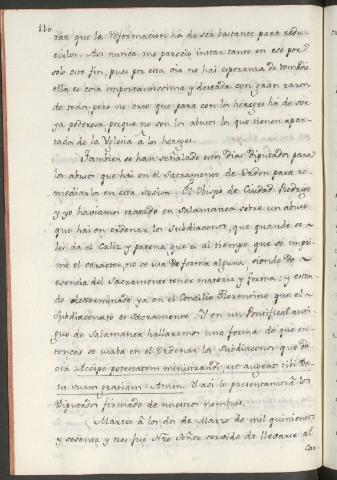 110
zar que la Reformacion há de ser bastante para redu-
cirlos. Assi nunca me pareció instar tanto en eso por
solo este fin; pues por esta via no hai esperanza de remedio.
ella es cosa importantissima y deseada con gran razon
de todos, pero no creo que para con los hereges há de ser
ya poderosa, porque no son los abusos lo que tienen apar-
tados de la Yglesia á los hereges.
Tambien se han señalado estos Dias Diputados para
los abusos que hai en el Sacramento de Orden para re-
mediarlos en esta sesion. El Obispo de Ciudad Rodrigo
y yo haviamos tratado en Salamanca sobre un abuso
que hai en ordenar los Subdiaconos, que quando se
les dá el Caliz y patena que es al tiempo que se impri-
me el caracter, no se usa de forma alguna siendo de
esencia del Sacramento tener materia y forma; y estan-
do determinado ya en el Concilio Florentino que el
Subdiaconato es Sacramento. Y en un Pontifical anti-
guo de Salamanca hallaremos una forma de que en-
tonces se usaba en el Ordenar los Subdiaconos que de-
cia Accipe potestatem ministrandi, ut augeat tibi De-
us suam gratiam. Amen. Y asi lo presentamos á los
Diputados firmado de nuestros nombres.
Martes á los dos de Marzo de mil quinientos
y sesenta y tres fué Ntro Señor servido de llevarse al
Car-